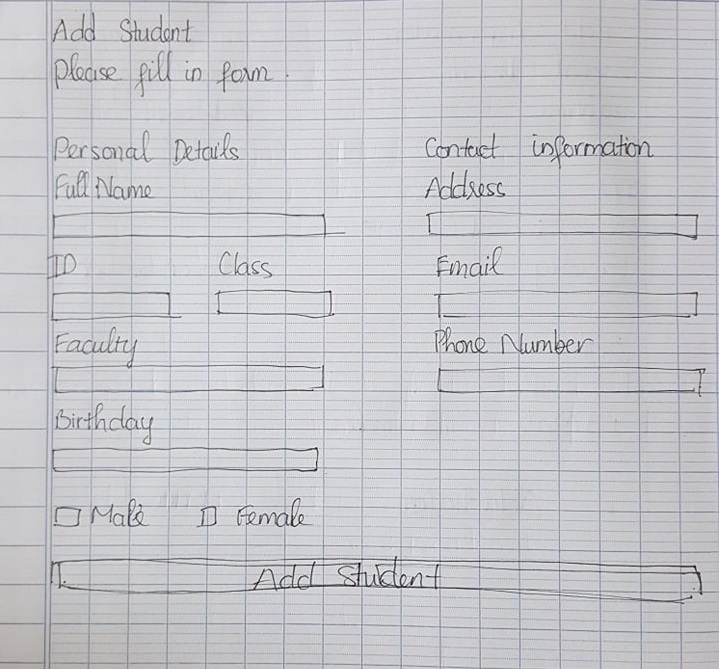 Add Student
Please fill in form.
Personal Details
Full Name
ID Class
Faculty
Birthday
Male Female
Contact information
Address
Email
Phone Number
Add Student